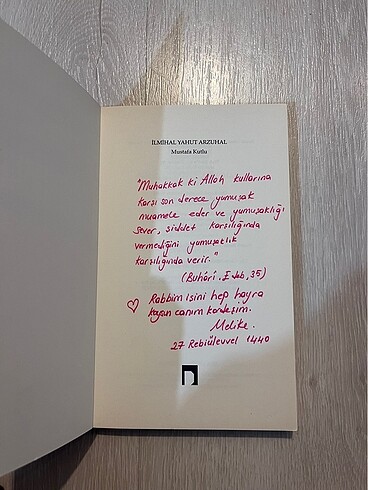 İLMİHAL YAHUT ARZUHAL
Mustafa Kutlu
"Muhakkak ki Allah kullarına
karşı son derece yumuşak
muamele eder ve yumuşaklığı
sever, şiddet karşılığında
vermediğini yumuşaklık
karşılığında verir."
(Buhârî, Edeb, 35)
Rabbim işini hep hayra
koysun canım kardeşim.
Melike.
27 Rebiülevvel 1440